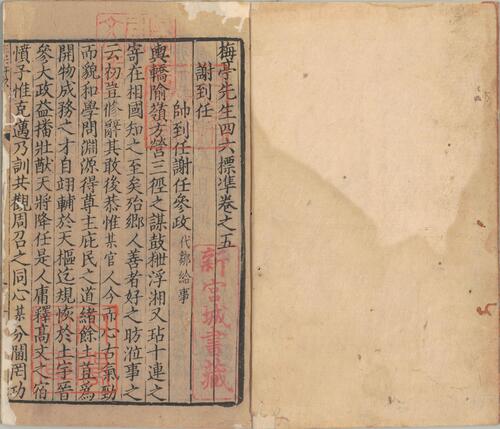 梅亭先生四六標準卷之五
謝到任
帥到任謝任參政代鄒給事
輿轎隃嶺方營三徑之謀鼓枻浮湘又玷十連之
寄在相國知之至矣殆鄉人善者好之昉涖事之
云初豈修辭其敢後恭惟某官人今而心古氣勁
而貌和學問淵源得尊主庇民之道緒餘土苴爲
開物成務之才自翊輔於天樞迄規恢於土宇晉
參大政益播壯猷天將降任是人庸釋髙文之宿
憤子惟克邁乃訓共觀周召之同心某分閫罔功
新宫城書藏